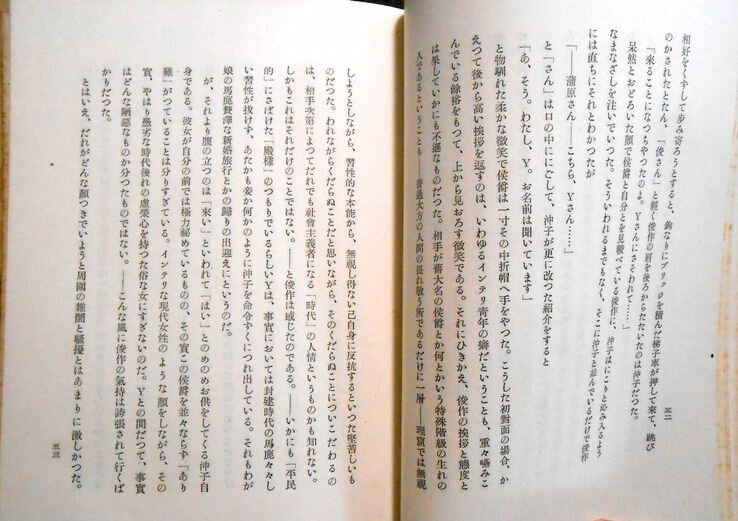 相好をくずして歩み寄ろうとすると、鉤なりにブリッジを積んだ梯子車が押して来て、跳び
のかされたとたん、「俊さん」と軽く俊作の肩を後ろからたたいたのは沖子だつた。
「来ることになつちやつたのよ。Yさんにさそわれて……」
呆然とおどろいた顔で侯爵と自分とを見較べている俊作に、沖子はにこりと沁み入るよう
なまなざしを注いでいつた。そういわれるまでもなく、そこに沖子と並んでいるだけで俊作
には直ちにそれとわかつたが
「――蒲原さん――こちら、Yさん……」
と「さん」は口の中ににごして、沖子が更に改つた紹介をすると
「あ、そう。わたし、Y。お名前は聞いています」
と物馴れた柔かな微笑で侯爵は一寸その中折帽へ手をやつた。こうした初對面の場合、か
えつて後から高い挨拶を返すのは、いわゆるインテリ青年の癖だということも、重々噛みこ
んでいる餘裕をもつて、上から見おろす微笑である。それにひきかえ、俊作の挨拶と態度と
は果していかにも不遜なものだつた。相手が舊大名の侯爵とか何とかいう特殊階級の生れの
人であるということも――普通大方の人間の畏れ敬う所であるだけに一層――理窟では無視
五二
しようとしながら、習性的な本能から、無視し得ない己自身に反抗するといつた堅苦しいも
のだつた。われながらくだらぬことだと思いながら、そのくだらぬことについこだわるの
は、相手次第によつてだれでも社會主義者になる「時代」の人情というものかも知れない。
しかもこれはそれだけのことではない。――と俊作は感じたのである。――いかにも「平民
的」にさばけた「殿樣」のつもりでいるらしいYは、事實においては封建時代の馬鹿々々し
い習性が抜けず、あたかも妾か何かのように沖子を命令ずくにつれ出している。それもわが
娘の馬鹿贅澤な新婚旅行とかの歸りの出迎えにというのだ。
が、それより腹の立つのは「來い」といわれて「はい」とのめのめお供をしてくる沖子自
身である。彼女が自分の前では極力祕めているものの、その實この侯爵を並々ならず「あり
難」がつていることは分りすぎている。インテリな現代女性のような顔をしながら、その
實、やはり愚劣な時代後れの虚榮心を持つた俗な女にすぎないのだ。Yとの間だつて、事實
はどんな陋惡なものか分つたものではない。――こんな風に俊作の氣持は誇張されて行くば
かりだつた。
とはいえ、だれがどんな顔つきでいようと周圍の雜鬧と騒擾とはあまりに激しかつた。
五三